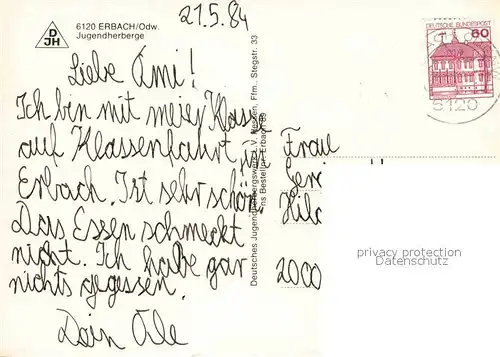 6120 ERBACH/Odw.
Jugendherberge
DJH
21.5.84
Liebe Omi!
Ich bin mit meier Klasse
auf Klassenfahrt in
Erbach. Ist sehr schön.
Das Essen schmeckt
nicht. Ich habe gar
nichts gegessen.
Dein Ole
Deutsches Jugendherbergswerk LV Hessen, Ffm., Stegstr. 33
Bestell-Nr. Erbach
DEUTSCHE BUNDESPOST
60
6120
Frau
Geri
Hild
2000
privacy protection
Datenschutz